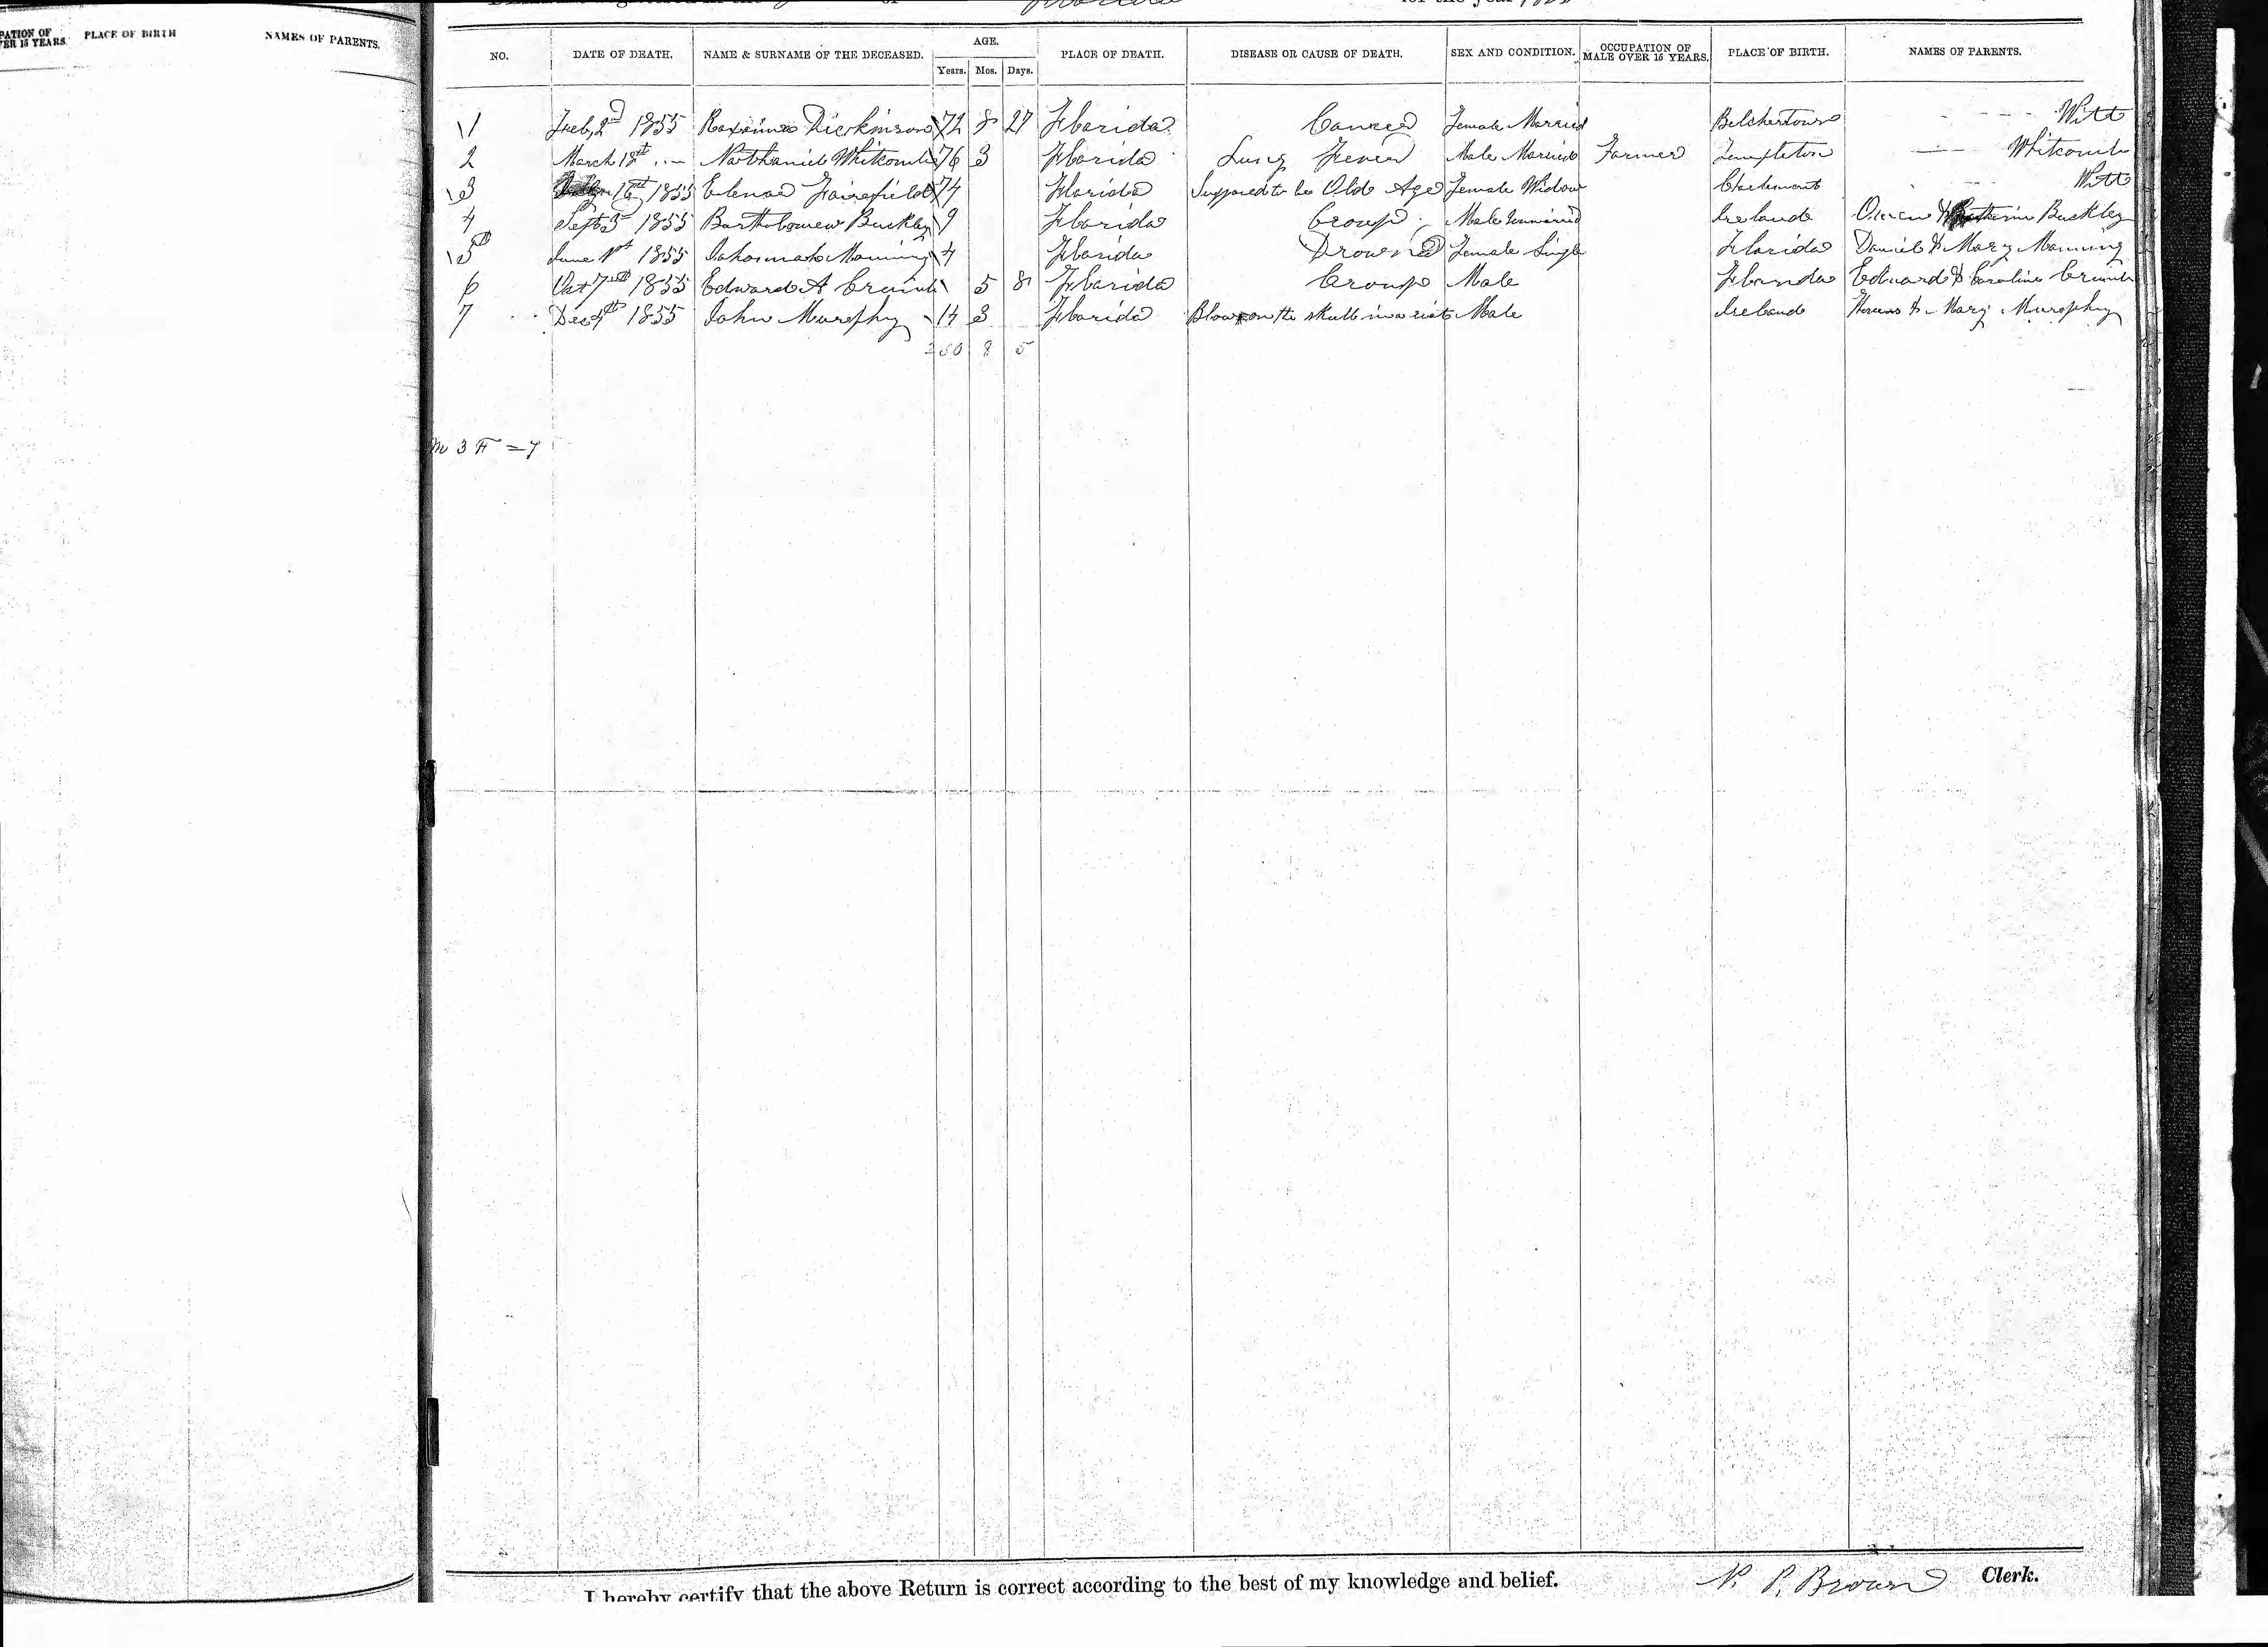 PATION OF PLACE OF BIRTH NAMES OF PARENTS.
ER 15 YEARS.
for the year
NO. DATE OF DEATH. NAME & SURNAME OF THE DECEASED. AGE. Years. Mos. Days. PLACE OF DEATH. DISEASE OR CAUSE OF DEATH. SEX AND CONDITION. OCCUPATION OF MALE OVER 15 YEARS. PLACE OF BIRTH. NAMES OF PARENTS.
1 Feb 2d 1855 Roxaina Dickinson 72 8 27 Florida Cancer Female Married Belchertown Witt
2 March 18th Nathaniel Whitcomb 76 3 Florida Lung Fever Male Married Farmer Templeton Whitcomb
3 1855 Elenor Fairfield 74 Florida Supposed to be Old Age Female Widow Witt
4 Sept 3d 1855 Bartholomew Buckley 9 Florida Croup Male Unmarried Ireland Owen & Buckley
5 June 1st 1855 Manning 4 Florida Drowned Female Single Florida Daniel & Mary Manning
6 Oct 7th 1855 Edward A 5 8 Florida Croup Male Florida Edward & Caroline
7 Dec 1855 John Murephy 14 3 Florida Blow on the skull in a riot Male Ireland & Mary Murephy
8 5
m 3 F = 7
I hereby certify that the above Return is correct according to the best of my knowledge and belief. N. P. Brown Clerk.